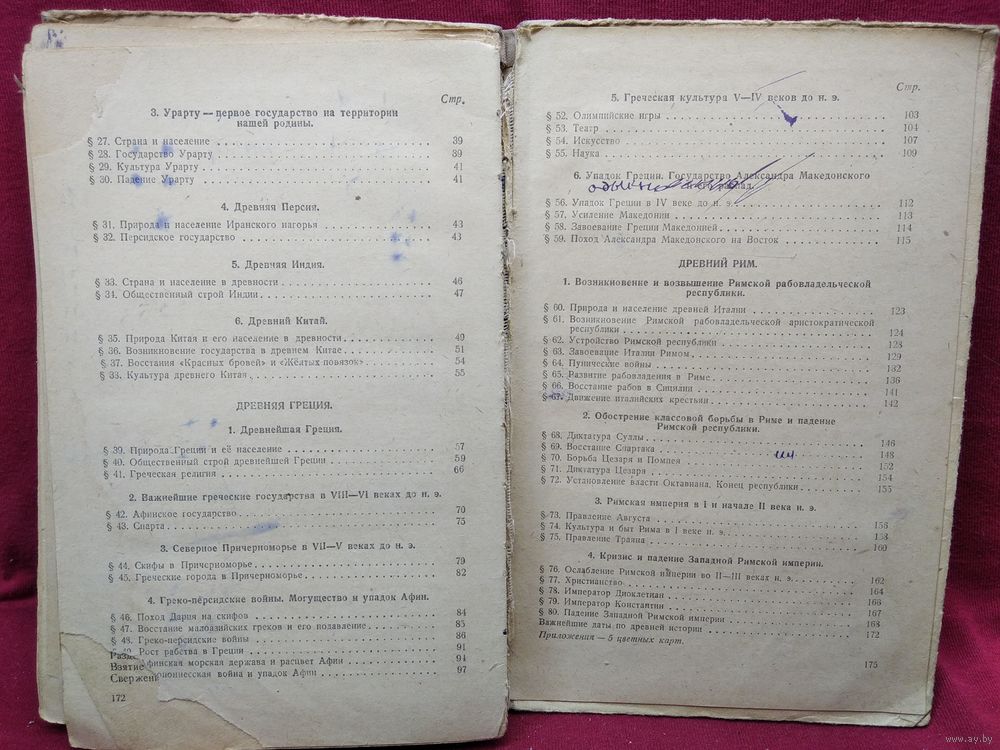 Стр.
3. Урарту — первое государство на территории
нашей родины.
§ 27. Страна и население 39
§ 28. Государство Урарту 39
§ 29. Культура Урарту 41
§ 30. Падение Урарту 41
4. Древняя Персия.
§ 31. Природа и население Иранского нагорья 43
§ 32. Персидское государство 43
5. Древняя Индия.
§ 33. Страна и население в древности 46
§ 34. Общественный строй Индии 47
6. Древний Китай.
§ 35. Природа Китая и его население в древности 49
§ 36. Возникновение государства в древнем Китае 51
§ 37. Восстания «Красных бровей» и «Жёлтых повязок» 54
§ 38. Культура древнего Китая 55
ДРЕВНЯЯ ГРЕЦИЯ.
1. Древнейшая Греция.
§ 39. Природа Греции и её население 57
§ 40. Общественный строй древнейшей Греции 59
§ 41. Греческая религия 66
2. Важнейшие греческие государства в VIII—VI веках до н. э.
§ 42. Афинское государство 70
§ 43. Спарта 75
3. Северное Причерноморье в VII—V веках до н. э.
§ 44. Скифы в Причерноморье 79
§ 45. Греческие города в Причерноморье 82
4. Греко-персидские войны. Могущество и упадок Афин.
§ 46. Поход Дария на скифов 84
§ 47. Восстание малоазийских греков и его подавление 85
§ 48. Греко-персидские войны 86
Рост рабства в Греции 91
Разде
Афинская морская держава и расцвет Афин 94
Взятие
война и упадок Афин 97
Свержени
172
Стр.
5. Греческая культура V—IV веков до н. э.
§ 52. Олимпийские игры 103
§ 53. Театр 104
§ 54. Искусство 107
§ 55. Наука 109
6. Упадок Греции. Государство Александра Македонского
§ 56. Упадок Греции в IV веке до н. э. 112
§ 57. Усиление Македонии 113
§ 58. Завоевание Греции Македонией 114
§ 59. Поход Александра Македонского на Восток 115
ДРЕВНИЙ РИМ.
1. Возникновение и возвышение Римской рабовладельческой
республики.
§ 60. Природа и население древней Италии 123
§ 61. Возникновение Римской рабовладельческой аристократической
республики 124
§ 62. Устройство Римской республики 128
§ 63. Завоевание Италии Римом 129
§ 64. Пунические войны 132
§ 65. Развитие рабовладения в Риме 136
§ 66. Восстание рабов в Сицилии 141
§ 67. Движение италийских крестьян 142
2. Обострение классовой борьбы в Риме и падение
Римской республики.
§ 68. Диктатура Суллы 146
§ 69. Восстание Спартака 148
§ 70. Борьба Цезаря и Помпея 152
§ 71. Диктатура Цезаря 154
§ 72. Установление власти Октавиана. Конец республики 155
3. Римская империя в I и начале II века н. э.
§ 73. Правление Августа 156
§ 74. Культура и быт Рима в I веке н. э. 158
§ 75. Правление Траяна 160
4. Кризис и падение Западной Римской империи.
§ 76. Ослабление Римской империи во II—III веках н. э. 162
§ 77. Христианство 164
§ 78. Император Диоклетиан 166
§ 79. Император Константин 167
§ 80. Падение Западной Римской империи 168
Важнейшие даты по древней истории 172
Приложения — 5 цветных карт.
175
www.ay.by